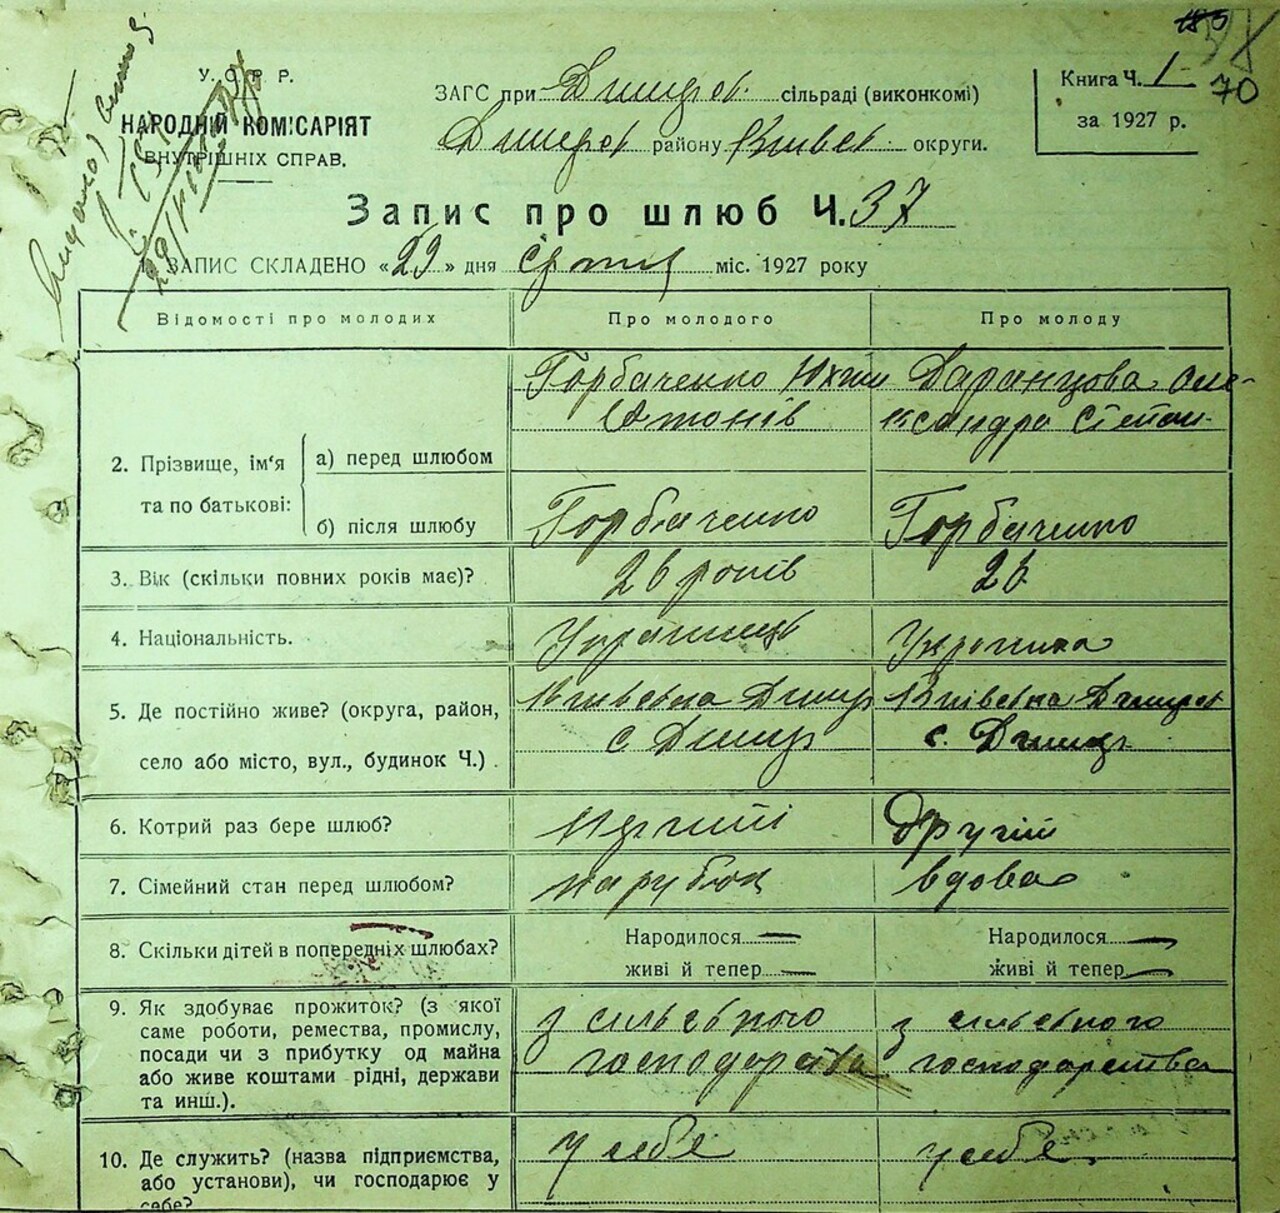 70
У. С. Р. Р.
НАРОДНІЙ КОМІСАРІЯТ
ВНУТРІШНІХ СПРАВ.
ЗАГС при Димерск. сільраді (виконкомі)
Димерск району Київск. округи.
Книга Ч. 1
за 1927 р.
Запис про шлюб Ч. 37
1. ЗАПИС СКЛАДЕНО «29» дня міс. 1927 року
Відомості про молодих Про молодого Про молоду
Горбаченко Юхим Даранцова Оле-
Антонів ксандра Степан.
2. Прізвище, ім'я та по батькові:
а) перед шлюбом
б) після шлюбу Горбаченко Горбаченко
3. Вік (скільки повних років має)? 26 років 26
4. Національність. Українець Українка
5. Де постійно живе? (округа, район, Київська Димер Київська Димерск
село або місто, вул., будинок Ч.) с Димер с. Димер
6. Котрий раз бере шлюб? Перший Другий
7. Сімейний стан перед шлюбом? парубок вдова
8. Скільки дітей в попередніх шлюбах? Народилося — Народилося —
живі й тепер — живі й тепер —
9. Як здобуває прожиток? (з якої
саме роботи, ремества, промислу,
посади чи з прибутку од майна
або живе коштами рідні, держави
та инш.).
з сільського з сільського
господарства господарства
10. Де служить? (назва підприємства, у себе у себе.
або установи), чи господарює у
себе?